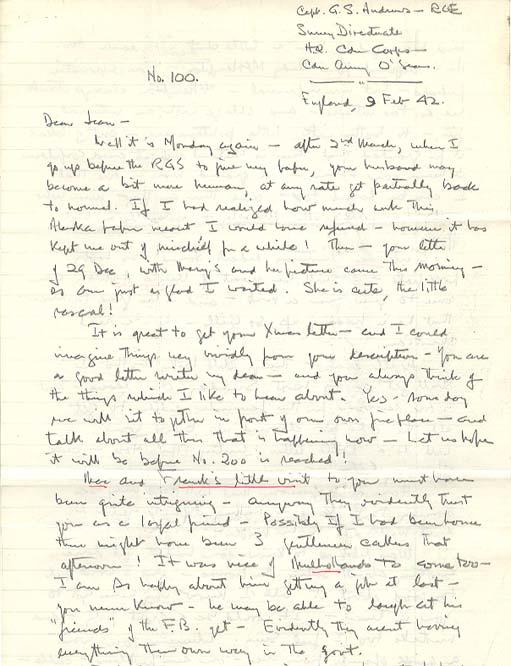 Capt. G.S. Andrews - RCE
Survey Directorate
H.Q. Cdn Corps -
Cdn Army O'Seas.
No. 100.
England, 9 Feb 42.
Dear Jean -
Well it is Monday again - after 2nd March, when I
go up before the RGS to give my paper, your husband may
become a bit more human, at any rate get partially back
to normal. If I had realized how much work this
Alaska paper meant I would have refused - however it has
kept me out of mischief for a while! Then - your letter
of 29 Dec, with Mary's and her picture came this morning -
so am just as glad I waited. She is cute, the little
rascal!
It is great to get your Xmas letter - and I could
imagine things very vividly from your description - You are
a good letter writer my dear - and you always think of
the things which I like to hear about. Yes - some day
we will sit together in front of our own fireplace - and
talk about all this that is happening now - Let us hope
it will be before No. 200 is reached!
and Frank's little visit to you must have
been quite intriguing - anyway they evidently trust
you as a loyal friend - Possibly if I had been home
there might have been 3 gentlemen callers that
afternoon! It was nice of Mulhollands to come too -
I am so happy about him getting a job at last -
you never know - he may be able to laugh at his
"friends" of the F.B. yet - Evidently they arent having
everything their own way in the Govt.